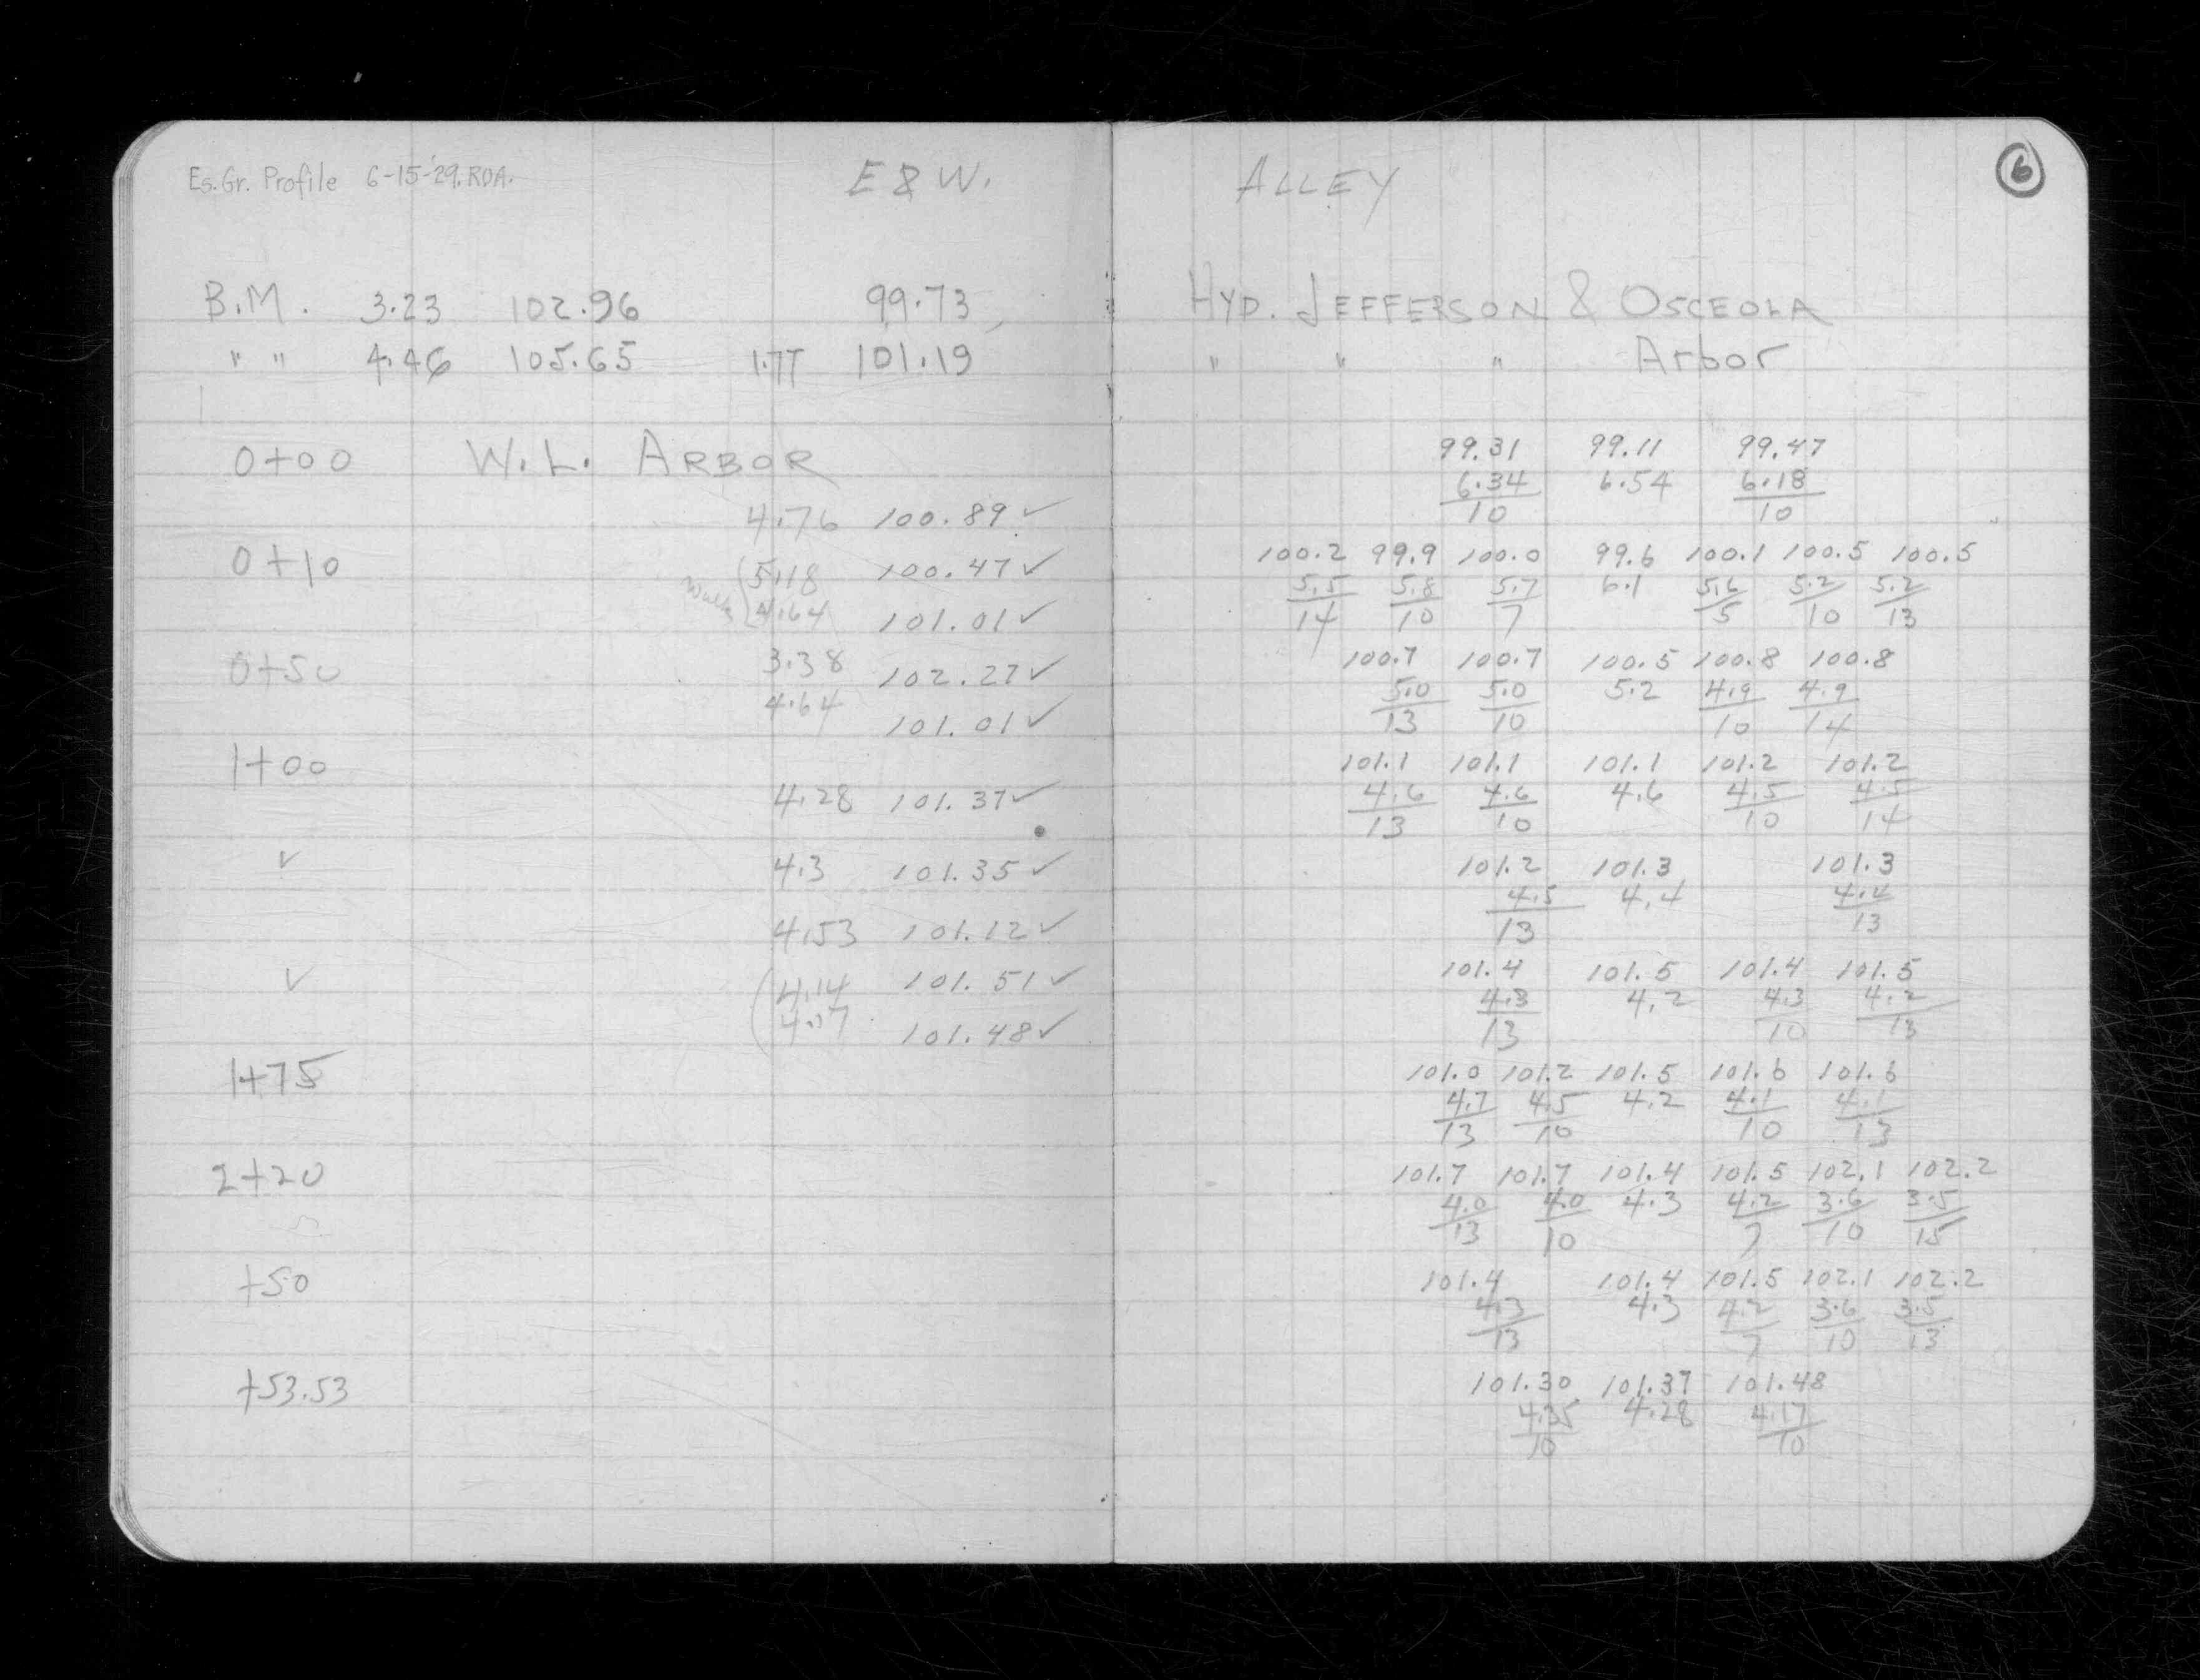 Es. Gr. Profile 6-15-'29. RDA.
E & W. ALLEY
6
B.M. 3.23 102.96 99.73 HYD. JEFFERSON & OSCEOLA
" " 4.46 105.65 1.77 101.19 " " " Arbor
0+00 W. L. ARBOR 99.31 99.11 99.47
6.34 6.54 6.18
4.76 100.89 ✓ 10 10
0+10 5.18 100.47 ✓ 100.2 99.9 100.0 99.6 100.1 100.5 100.5
5.5 5.8 5.7 6.1 5.6 5.2 5.2
Walk 4.64 101.01 ✓ 14 10 7 5 10 13
0+50 3.38 102.27 ✓ 100.7 100.7 100.5 100.8 100.8
4.64 5.0 5.0 5.2 4.9 4.9
101.01 ✓ 13 10 10 14
1+00 101.1 101.1 101.1 101.2 101.2
4.28 101.37 ✓ 4.6 4.6 4.6 4.5 4.5
13 10 10 14
✓ 4.3 101.35 ✓ 101.2 101.3 101.3
4.5 4.4 4.4
4.53 101.12 ✓ 13 13
✓ 4.14 101.51 ✓ 101.4 101.5 101.4 101.5
4.17 4.3 4.2 4.3 4.2
101.48 ✓ 13 10 13
1+75 101.0 101.2 101.5 101.6 101.6
4.7 4.5 4.2 4.1 4.1
13 10 10 13
2+20 101.7 101.7 101.4 101.5 102.1 102.2
4.0 4.0 4.3 4.2 3.6 3.5
13 10 7 10 15
+50 101.4 101.4 101.5 102.1 102.2
4.3 4.3 4.2 3.6 3.5
13 7 10 13
+53.53 101.30 101.37 101.48
4.35 4.28 4.17
10 10